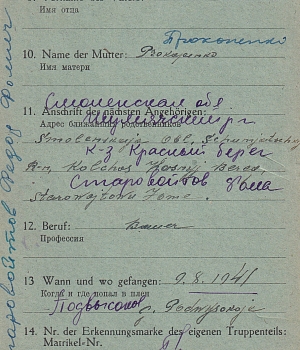 Имя отца
Прокопенко
10. Name der Mutter: Prokopenko
Имя матери
Смоленская обл
11. Anschrift der nächsten Angehörigen:
Адрес ближайших родственников
Smolenskaja Obl.
к-з Красный берег
R-n, Kolchos Krasnij Bereg
Старовойтов Фома
12. Beruf: Bauer
Профессия
13 Wann und wo gefangen: 9.8.1941
Когда и где попал в плен
Подвысокое
g. Podwysokoje
14. Nr. der Erkennungsmarke des eigenen Truppenteils:
Matrikel-Nr.
Старовойтов Федор Фомич